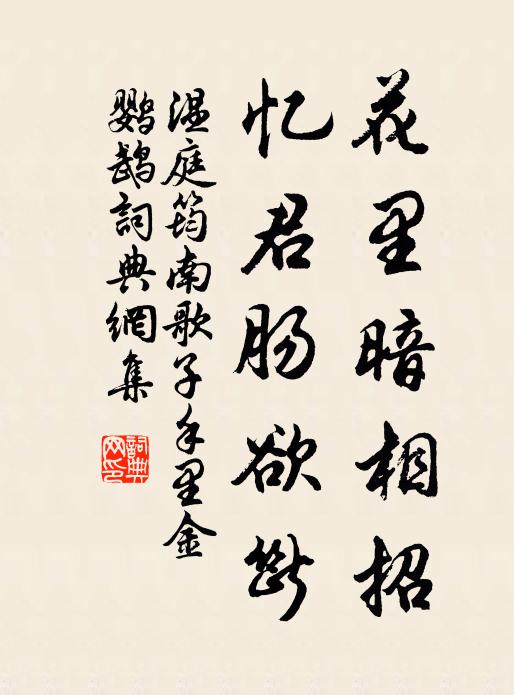 花里暗相招
忆君肠欲断
温庭筠南歌子手里金
鹦鹉词典網集
詞典網印